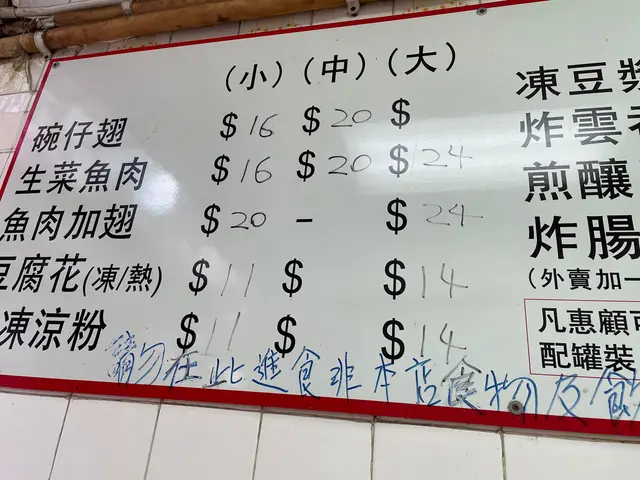 (小) (中) (大)
碗仔翅 $16 $20 $
生菜魚肉 $16 $20 $24
魚肉加翅 $20 - $24
豆腐花(凍/熱) $11 $ $14
凍涼粉 $11 $ $14
凍豆漿
炸雲
煎釀
炸腸
(外賣加一
凡惠顧
配罐裝
請勿在此進食非本店食物及飲